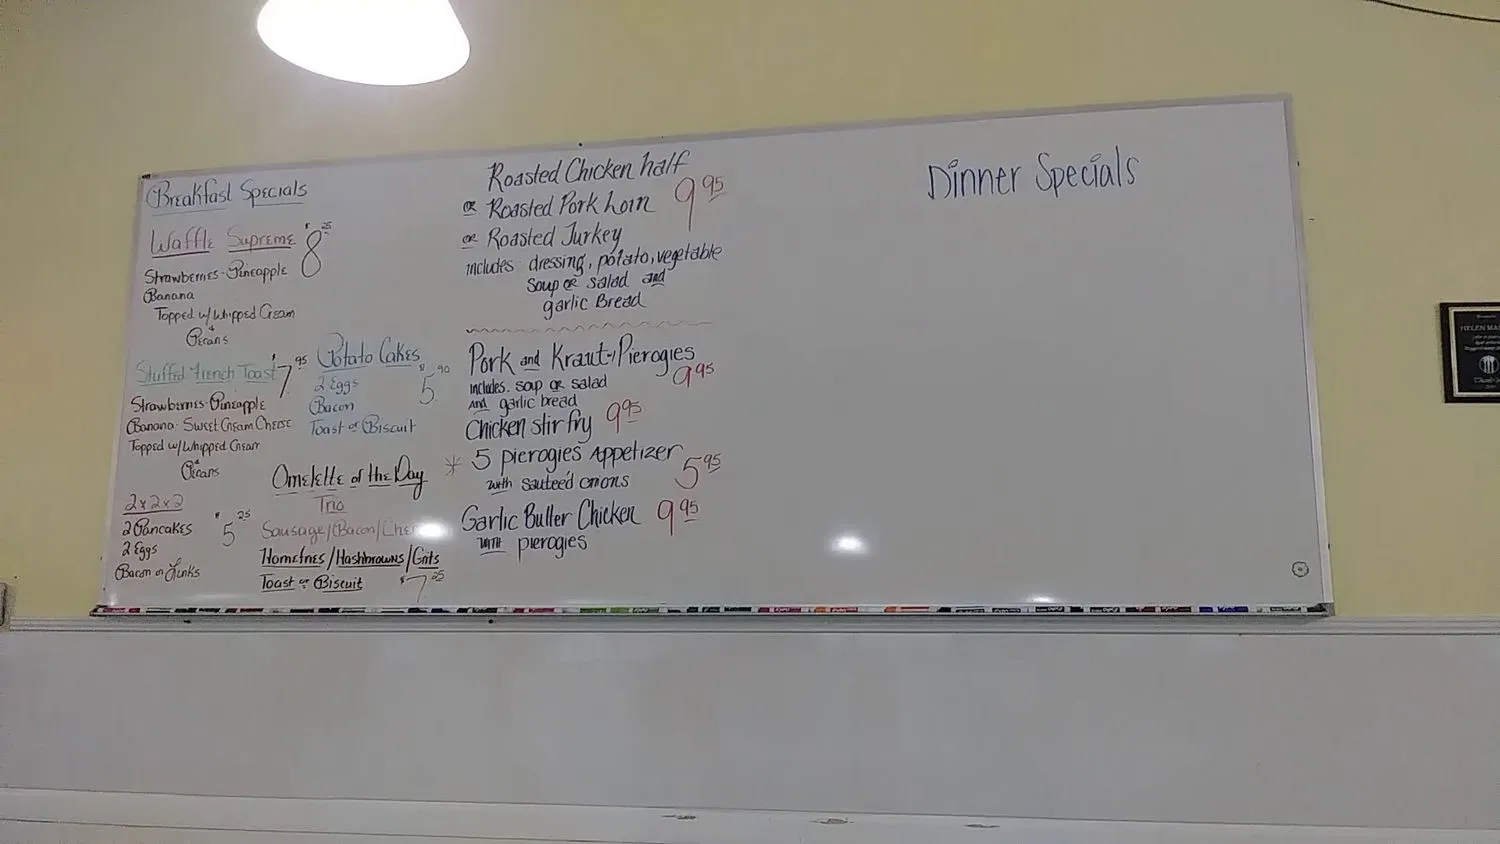 Breakfast Specials
Waffle Supreme $8 25
Strawberries-Pineapple
Banana
Topped w/ Whipped Cream
&
Pecans
Stuffed French Toast $7 95
Strawberries-Pineapple
Banana-Sweet Cream Cheese
Topped w/ Whipped Cream
&
Pecans
2x2x2
2 Pancakes $5 25
2 Eggs
Bacon or Links
Potato Cakes
2 Eggs $5 90
Bacon
Toast or Biscuit
Omelette of the Day
Trio
Sausage/Bacon/
Homefries/Hashbrowns/Grits
Toast or Biscuit $7 25
Roasted Chicken half
or Roasted Pork Loin 9 95
or Roasted Turkey
includes dressing, potato, vegetable
soup or salad and
garlic Bread
Pork and Kraut-Pierogies
includes soup or salad 9 95
and garlic bread
Chicken stir fry 9 95
* 5 pierogies Appetizer
with sauteéd onions 5 95
Garlic Butter Chicken 9 95
with pierogies
Dinner Specials
HELEN